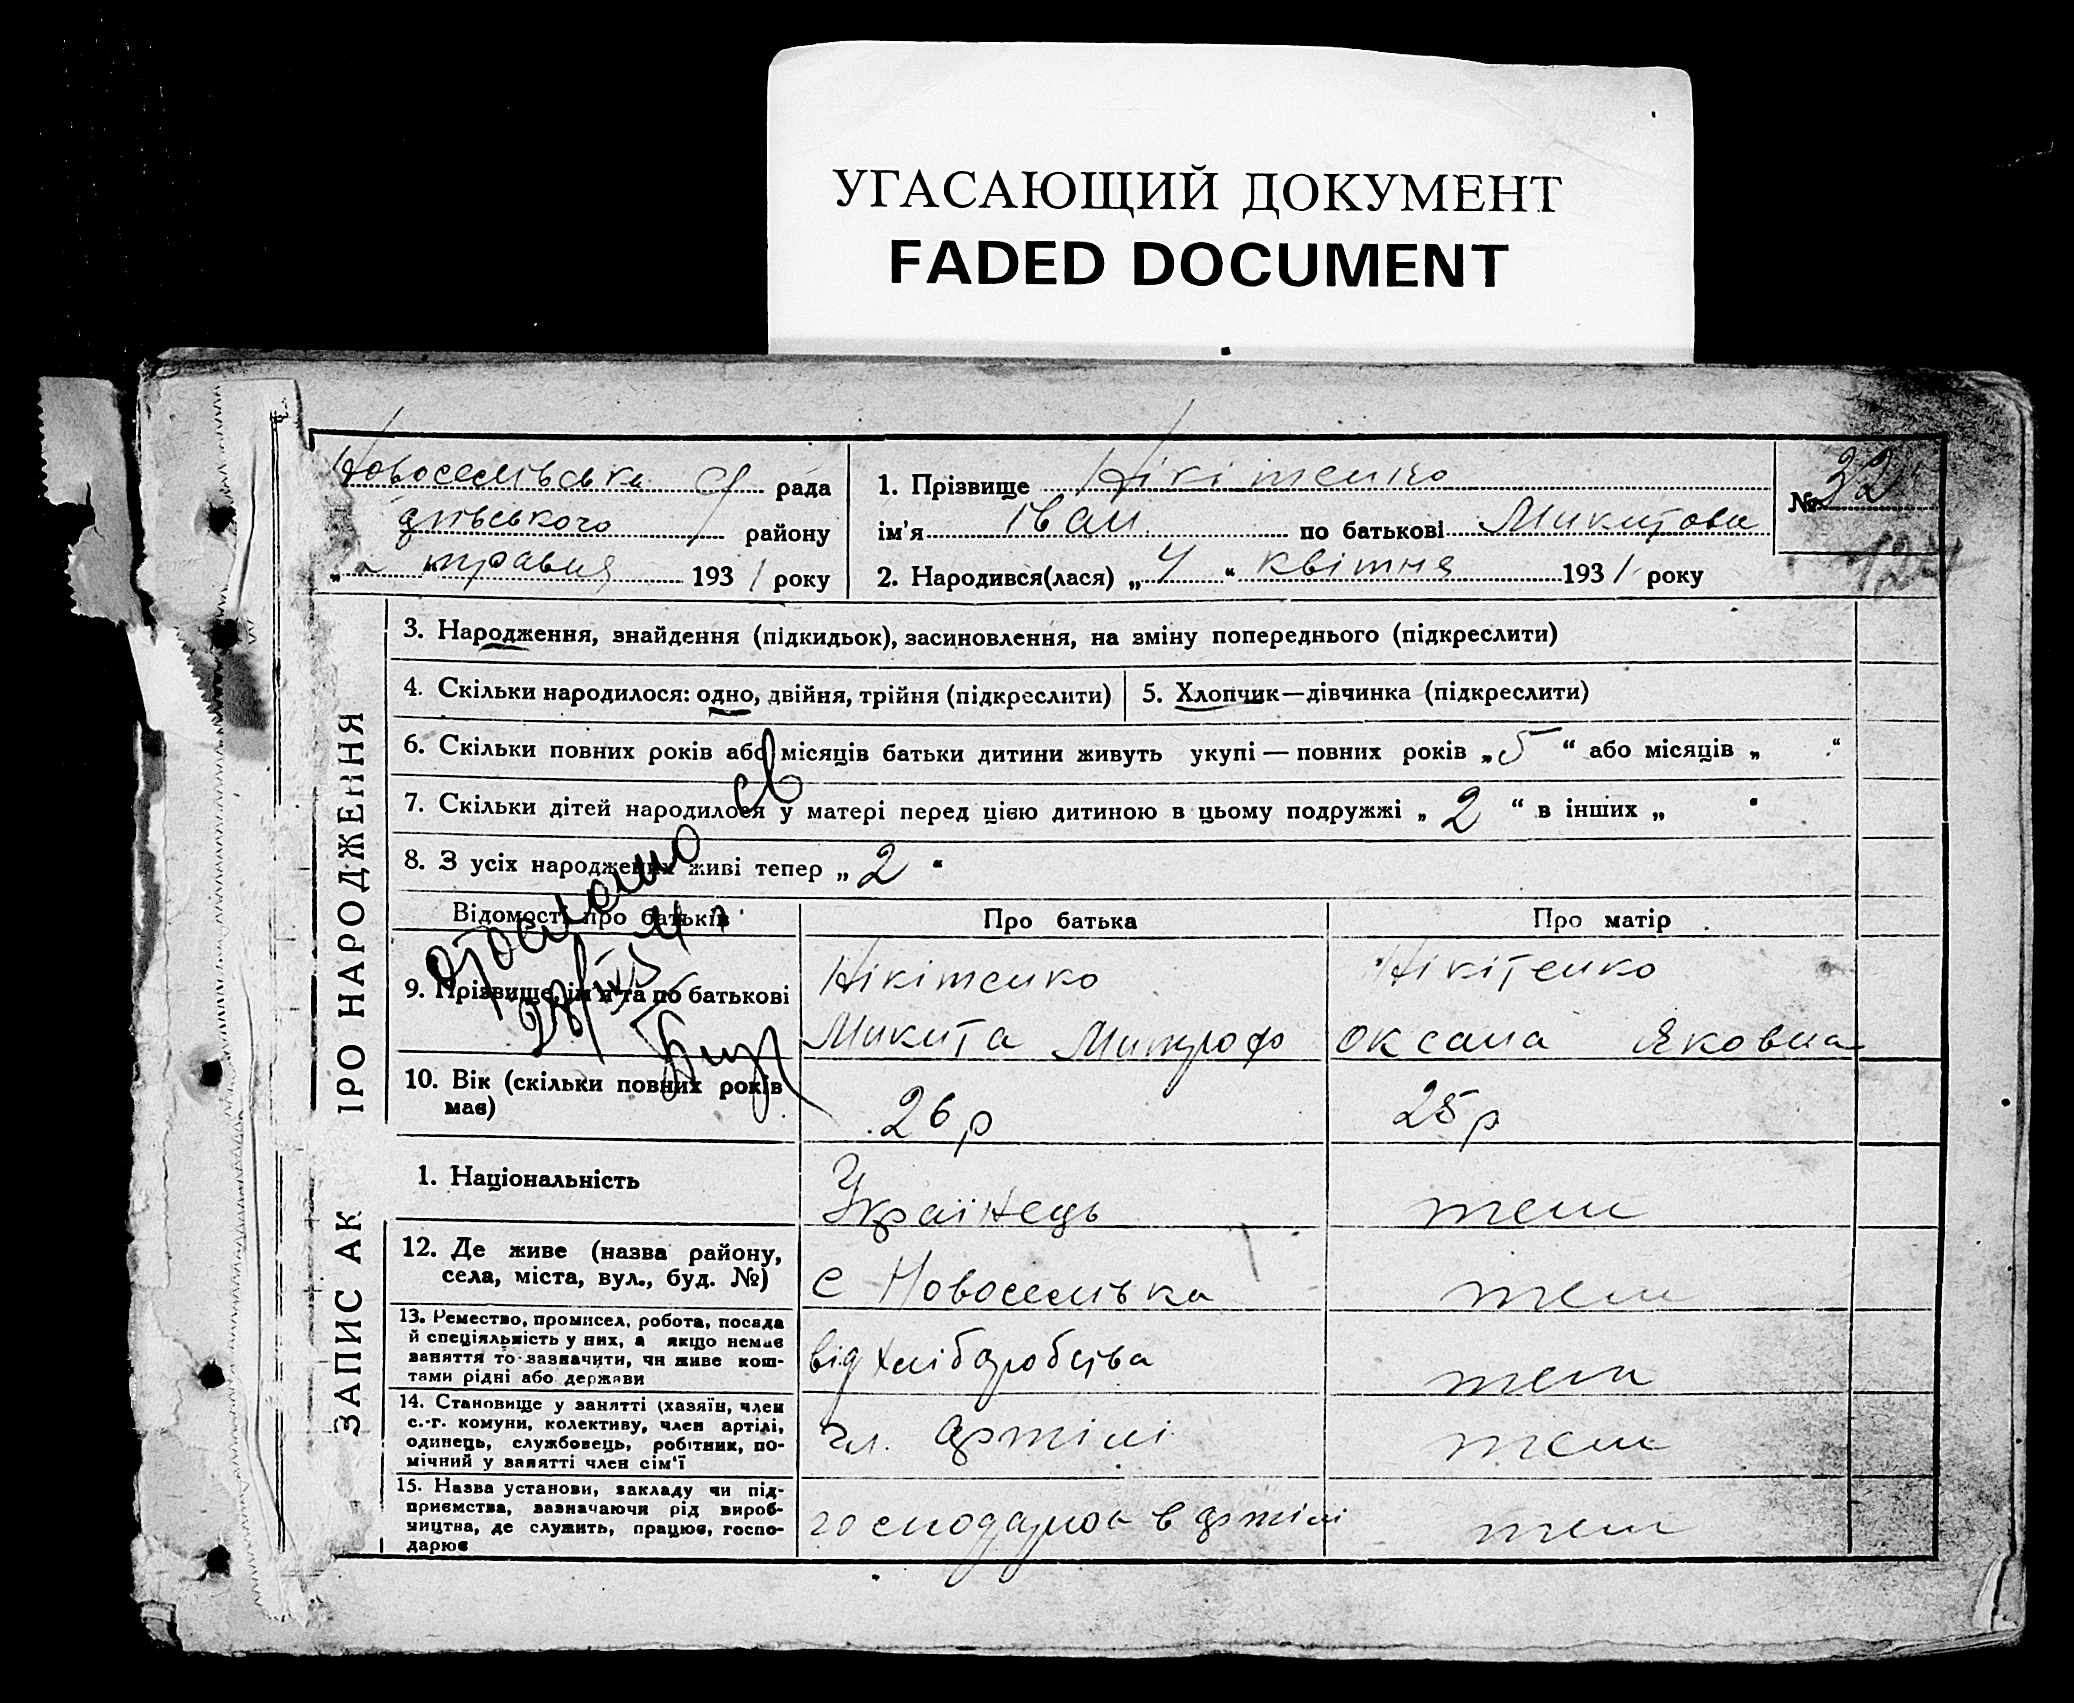 УГАСАЮЩИЙ ДОКУМЕНТ
FADED DOCUMENT
Новоселівська с рада
району
травня 1931 року
1. Прізвище Нікітенко
ім'я Іван по батькові Микитови
2. Народився(лася) „4“ квітня 1931 року
№ 32
124
ЗАПИС АК ІРО НАРОДЖЕННЯ
3. Народження, знайдення (підкидьок), засиновлення, на зміну попереднього (підкреслити)
4. Скільки народилося: одно, двійня, трійня (підкреслити)
5. Хлопчик—дівчинка (підкреслити)
6. Скільки повних років або місяців батьки дитини живуть укупі — повних років „5“ або місяців „ “
7. Скільки дітей народилося у матері перед цією дитиною в цьому подружжі „2“ в інших „
8. З усіх народжених живі тепер „2“
Відомості про батьків
Про батька
Про матір
9. Прізвище, ім'я та по батькові
Нікітенко
Микита Митроф
Нікітенко
Оксана Яковна
10. Вік (скільки повних років має)
26 р
25 р
1. Національність
Українець
теж
12. Де живе (назва району,
села, міста, вул., буд. №)
с Новоселівка
теж
13. Ремество, промисел, робота, посада
й спеціяльність у них, а якщо немає
заняття то зазначити, чи живе кош-
тами рідні або держави
від хліборобства
теж
14. Становище у занятті (хазяїн, член
с.-г. комуни, колективу, член артілі,
одинець, службовець, робітник, по-
мічний у занятті член сім'ї
чл. артілі
теж
15. Назва установи, закладу чи під-
приємства, зазначаючи рід вироб-
ництва, де служить, працює, госпо-
дарює
в артілі
теж